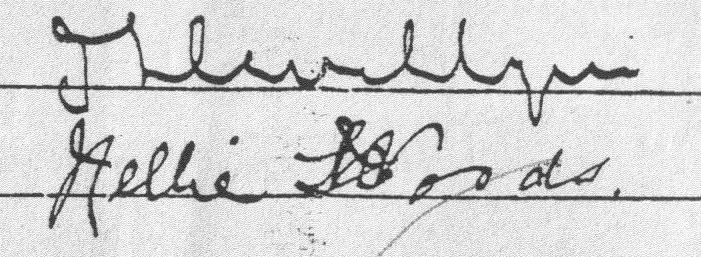 Llewellyn
Nellie Woods.